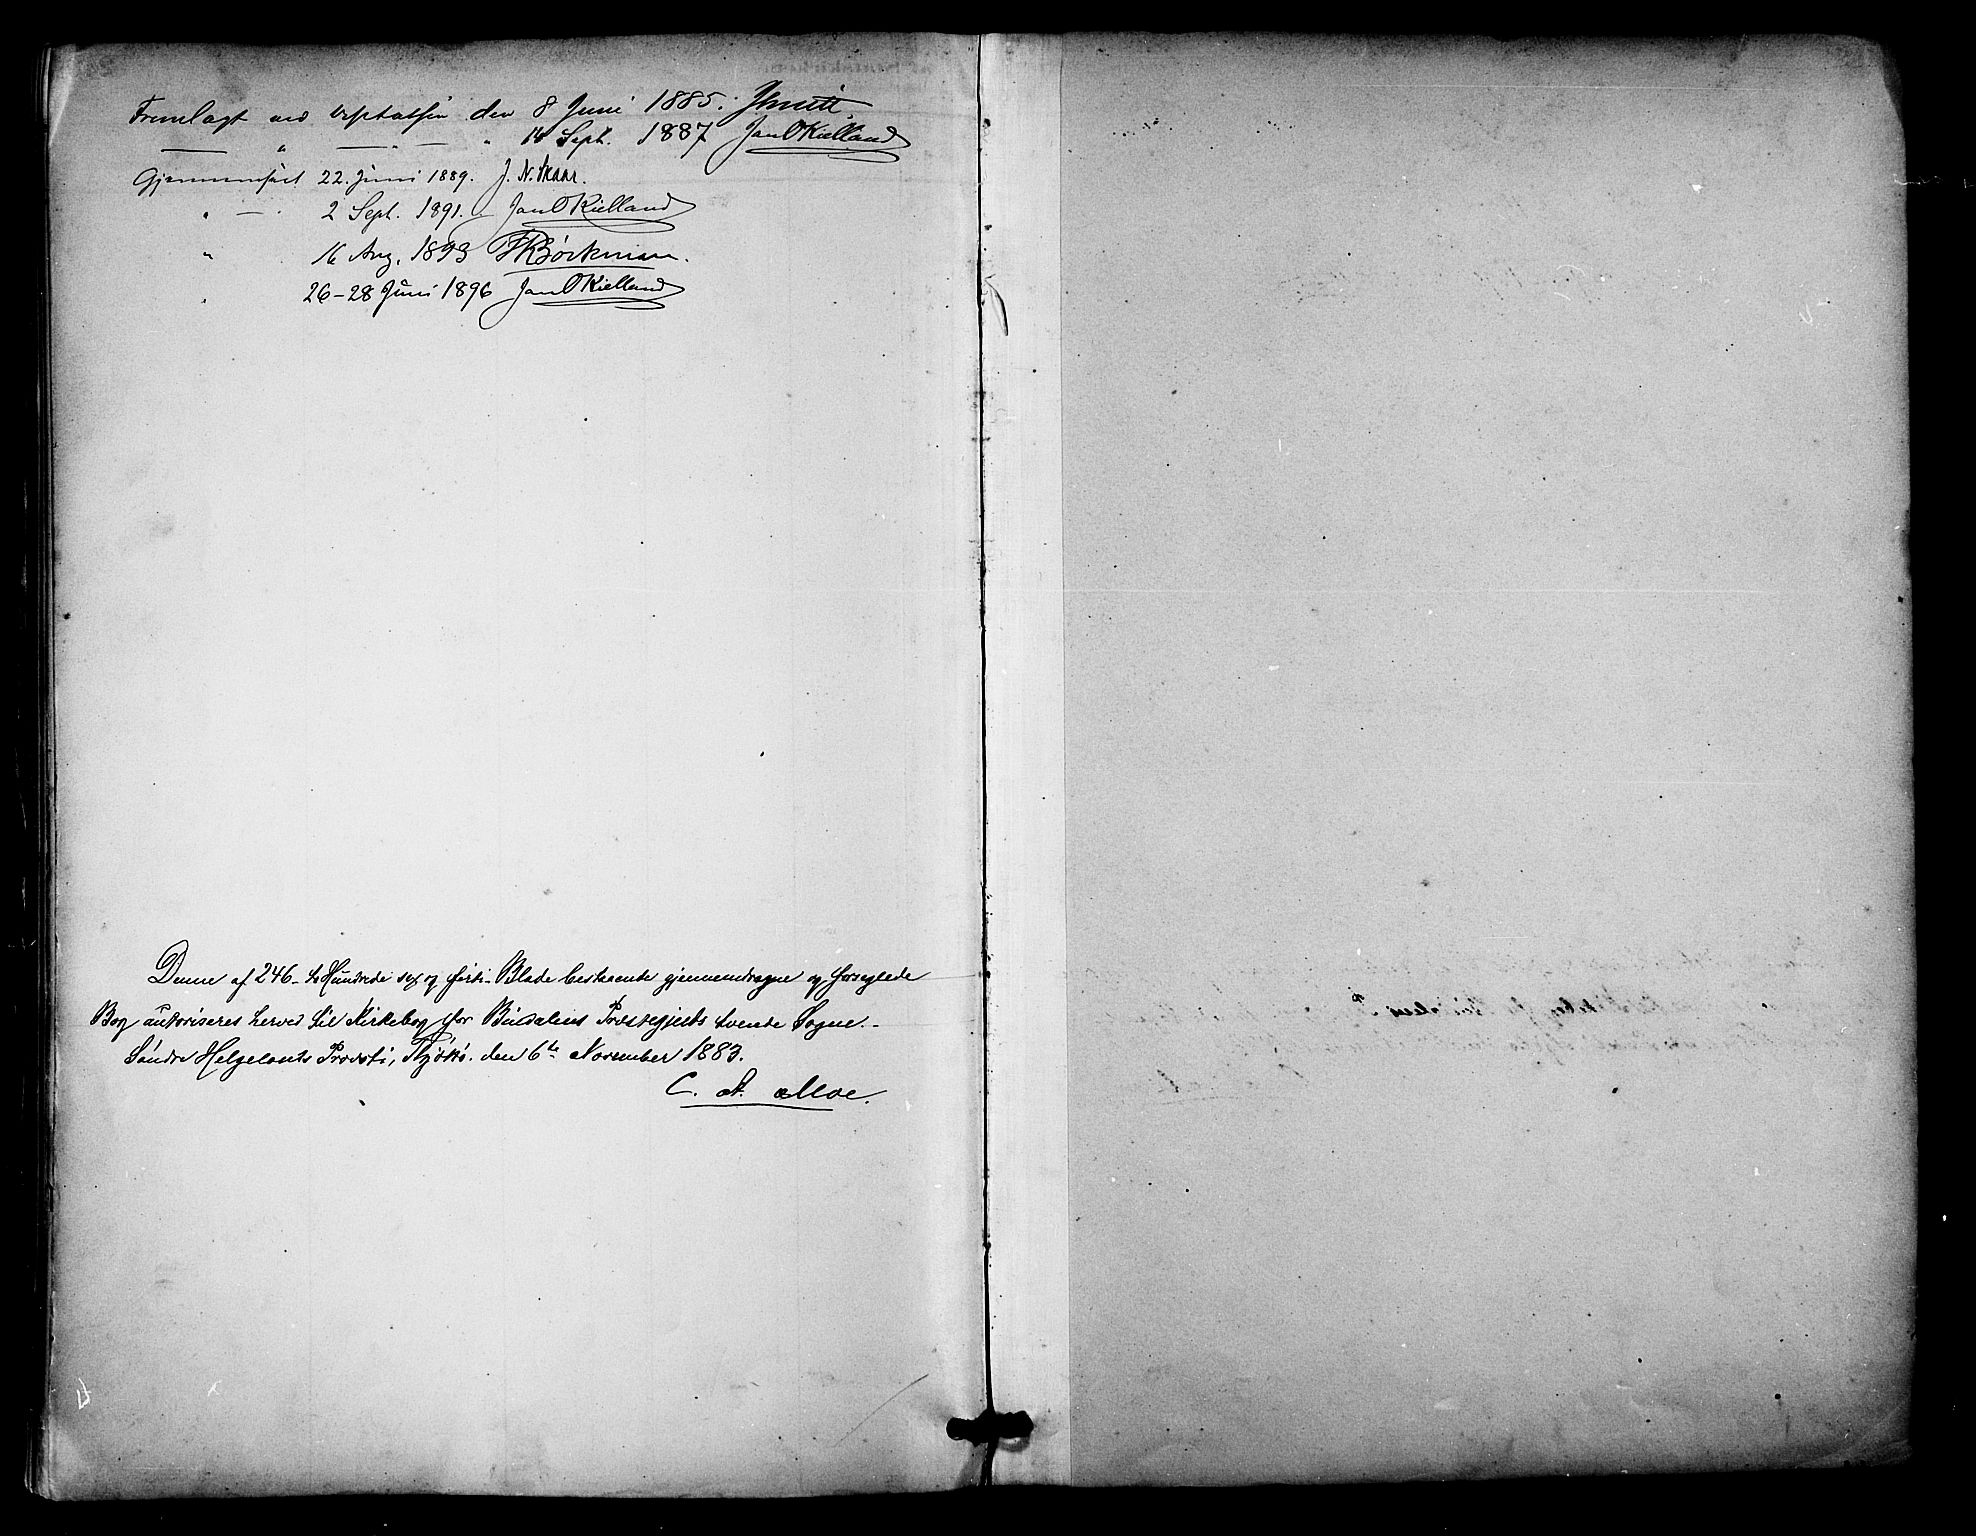 Fremlagt ved den 8 Juni 1885.
— " — " — " 14 Sept. 1887 Jan O Kielland
Gjennemseet 22. Juni 1889. J. N. Skaar.
" — 2 Sept. 1891. Jan O Kielland
" 16 Aug. 1893 Bøckman.
" 26–28 Juni 1896 Jan O Kielland
Denne af 246 - to Hundrede sex og firti - Blade bestaaende gjennemdragne og forseglede
Bog autoriseres herved til Kirkebog for Bindalens Præstegjelds tvende Sogne. -
Søndre Helgelands Provsti, Tjøtø. den 6te November 1883.
C. A. Moe.